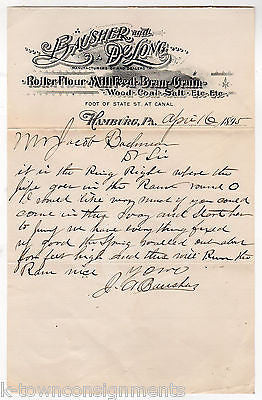 BAUSHER and DeLONG
MANUFACTURERS OF AND DEALERS IN
Roller Flour, Mill Feed, Bran, Grain,
Wood, Coal, Salt, Etc. Etc.
FOOT OF STATE ST. AT CANAL
HAMBURG, PA. Apri 6 1895
Mr Jacob Bachman
D Sir
it in the Ring Right where the
pipe goes in the Ram round O
I should like very much if you could
come in this way and start her
to pump we have every thing fixed
up good the Spring walled out
four feet high and this will Run the
Ram nice
yours
J. A Baushar
k-townconsignments.com